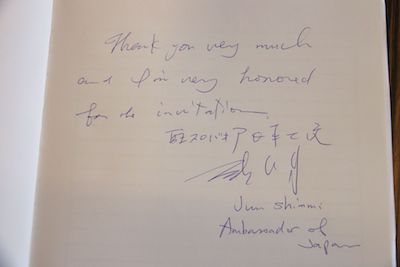 Thank you very much
and I'm very honored
for the invitation.
駐スロバキア日本大使
Jun Shimmi
Ambassador of
Japan